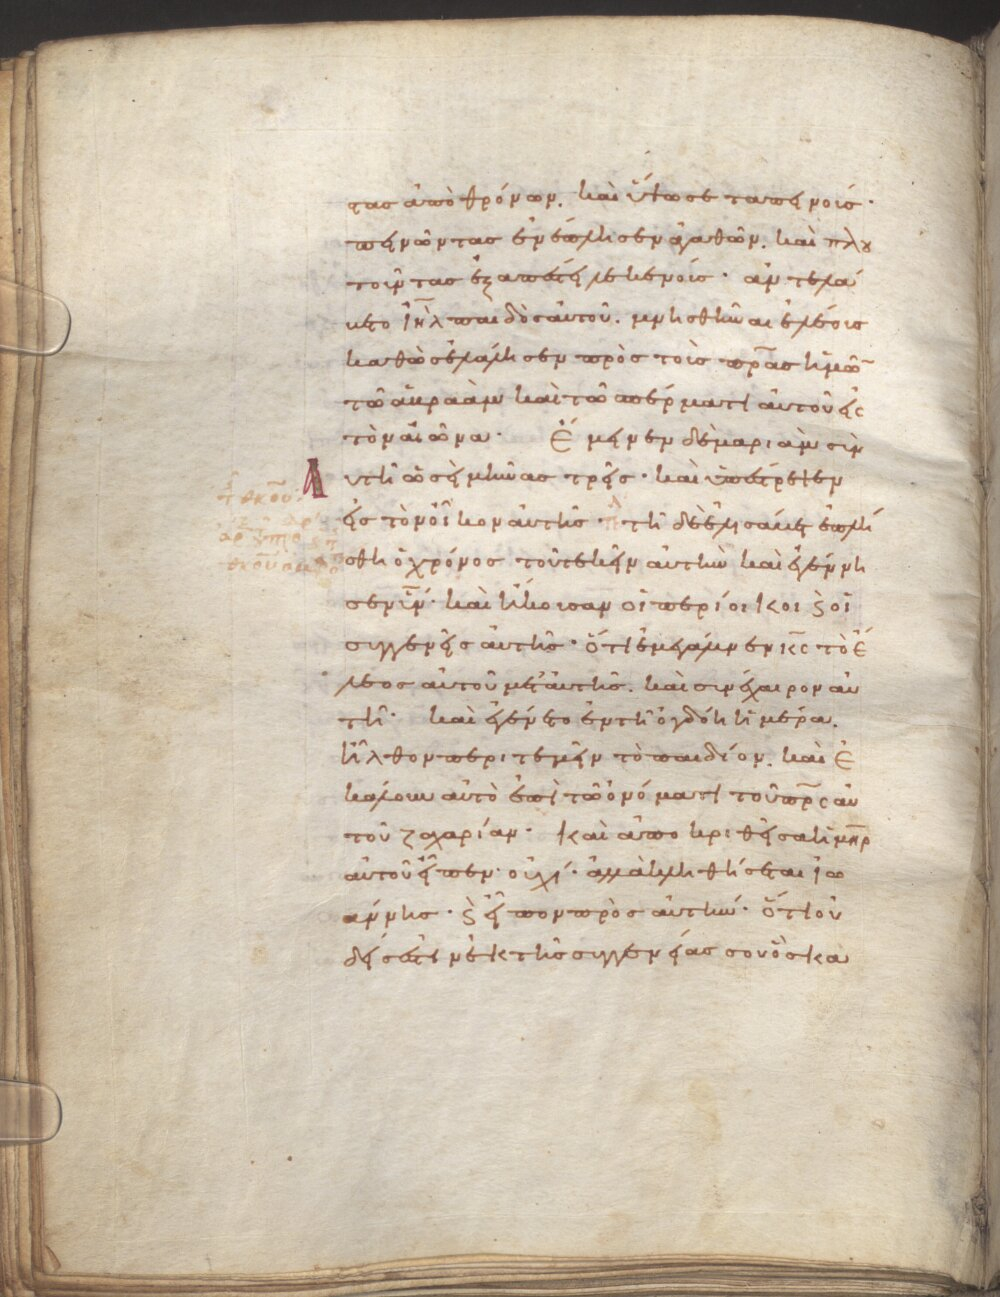 τας ἀπὸ θρόνων. καὶ ὕψωσε ταπεινοὺς·
πεινῶντας ἐνέπλησεν ἀγαθῶν. καὶ πλου
τοῦντας ἐξαπέστειλε κενοὺς· ἀντελά
βετο ἰη̅λ παιδὸς αὐτοῦ. μνησθῆναι ἐλέους
καθὼς ἐλάλησεν πρὸς τοὺς πρ̅ας ἡμῶ̅
τῶ ἀβραὰμ καὶ τῶ σπέρματι αὐτοῦ εἰς
τὸν αἰῶνα· Ἔμεινεν δὲ μαριὰμ σὺν
αὐτῆ ὡσεὶ μῆνας τρεῖς· καὶ ὑπέστρεψεν
εἰς τὸν οἶκον αὐτῆς· τῆ δὲ ἐλισάβετ ἐπλή
σθη ὁ χρόνος τοῦ τεκεῖν αὐτὴν καὶ ἐγέννη
σεν υἱ̅ν· καὶ ἤκουσαν οἱ περίοικοι ϗ οἱ
συγγενεῖς αὐτῆς· ὅτι ἐμεγάλυνεν κ̅ς τὸ ἔ
λεος αὐτοῦ μετ' αὐτῆς. καὶ συνέχαιρον αὐ
τῆ· καὶ ἐγένετο ἐν τῆ ὀγδόη ἡμέρα.
ἦλθον περιτεμεῖν τὸ παιδίον. καὶ ἐ
κάλουν αὐτὸ ἐπὶ τῶ ὀνόματι τοῦ πρ̅ς αὐ
τοῦ ζαχαρίαν· Καὶ ἀποκριθεῖσα ἡ μη̅ρ
αὐτοῦ εἶπεν· οὐχί· ἀλλὰ κληθήσεται ἰω
άννης· ϗ εἶπον πρὸς αὐτήν· ὅτι οὐ
δείς ἐστιν ἐκ τῆς συγγενείας σου ὃς κα